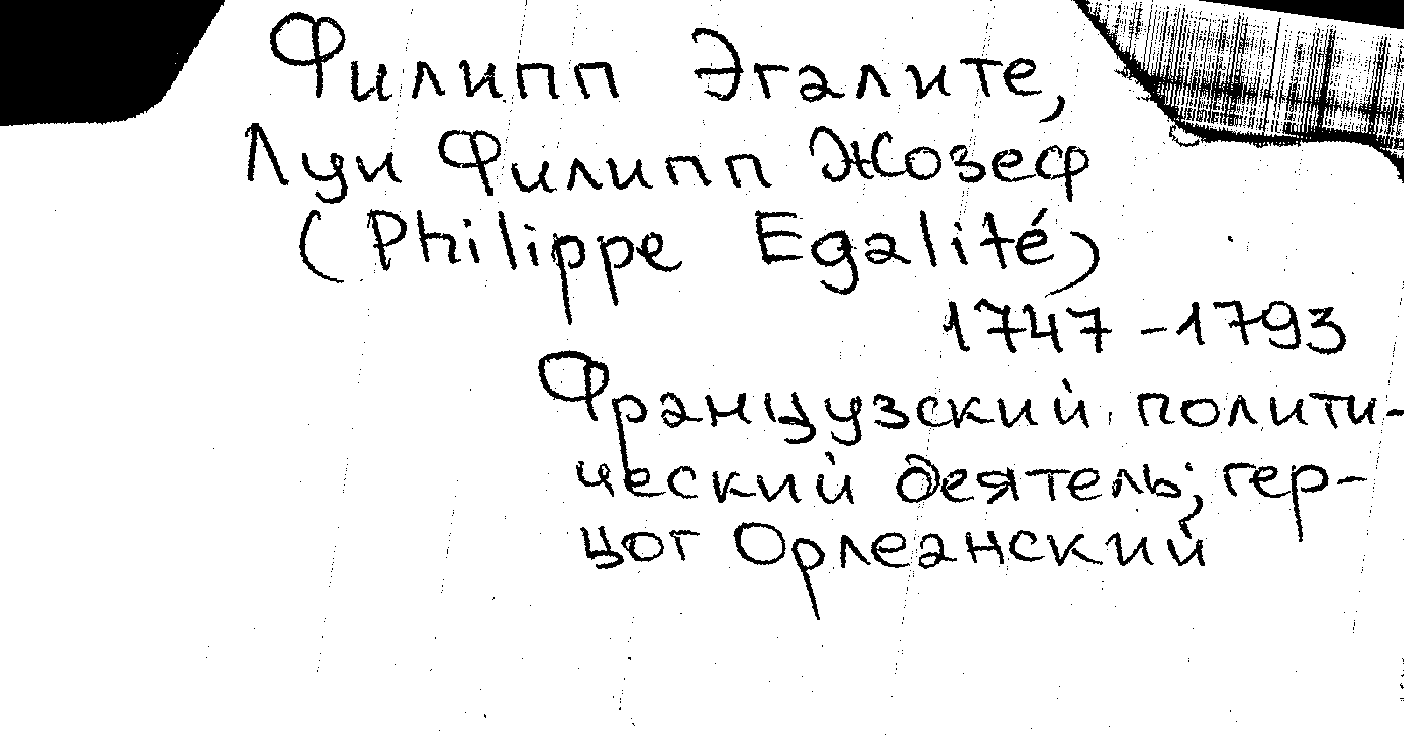 Филипп Эгалите,
Луи Филипп Жозеф
(Philippe Egalité)
1747-1793
Французский полити-
ческий деятель; гер-
цог Орлеанский